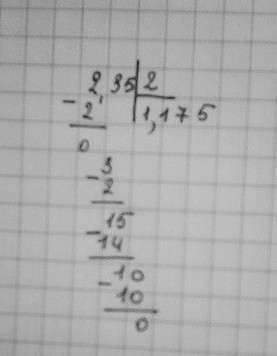 2,35 2
- 2 1,175
0
- 3
2
15
- 14
10
- 10
0